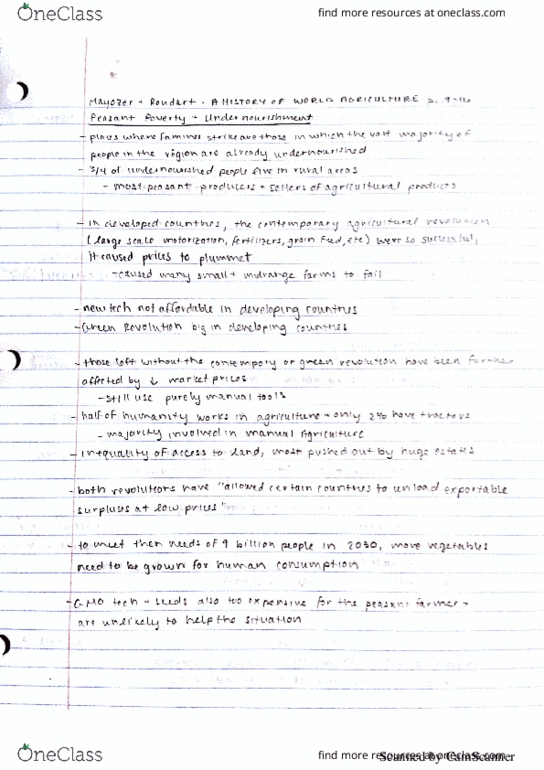 OneClass
find more resources at oneclass.com
Mayozer + Roudart - A HISTORY OF WORLD AGRICULTURE p. 9-16
Peasant Poverty + Undernourishment
- places where famines strike are those in which the vast majority of
people in the region are already undernourished
- 3/4 of undernourished people live in rural areas
- most peasant producers + sellers of agricultural products
- in developed countries, the contemporary agricultural revolution
(large scale motorization, fertilizers, grain fed, etc) were so successful,
it caused prices to plummet
- caused many small + midrange farms to fail
- new tech not affordable in developing countries
- Green Revolution big in developing countries
- those left without the contempory or green revolution have been further
affected by ↓ market prices
- still use purely manual tools
- half of humanity works in agriculture + only 2% have tractors
- majority involved in manual agriculture
- inequality of access to land, most pushed out by huge estates
- both revolutions have "allowed certain countries to unload exportable
surpluses at low prices"
- to meet then needs of 9 billion people in 2050, more vegetables
need to be grown for human consumption
- GMO tech + seeds also too expensive for the peasant farmer +
are unlikely to help the situation
OneClass
find more resources at oneclass.com
Scanned by CamScanner